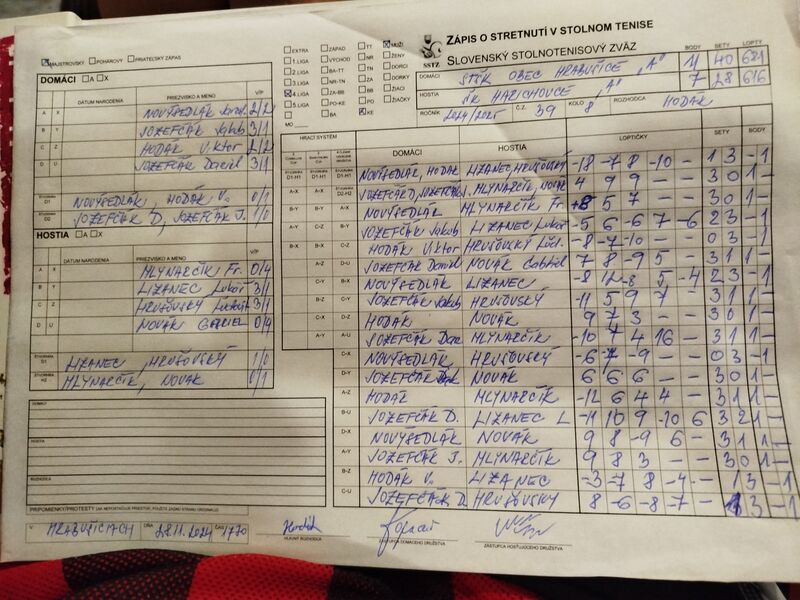 ZÁPIS O STRETNUTÍ V STOLNOM TENISE
SLOVENSKÝ STOLNOTENISOVÝ ZVÄZ
SSTZ
MAJSTROVSKÝ POHÁROVÝ PRIATEĽSKÝ ZÁPAS
EXTRA ZÁPAD TT MUŽI
1.LIGA VÝCHOD NR ŽENY
2.LIGA BA-TT TN DORCI
3.LIGA NR-TN ZA DORKY
4.LIGA ZA-BB BB ŽIACI
5.LIGA PO-KE PO ŽIAČKY
BA KE
MO
BODY SETY LOPTY
DOMÁCI STŠK OBEC HRABUŠICE "A" 11 40 681
HOSTIA ŠK HARICHOVCE "A" 7 28 616
ROČNÍK 2024/2025 Č.Z. 39 KOLO 8 ROZHODCA HODÁK
DOMÁCI A X
DÁTUM NARODENIA PRIEZVISKO A MENO V/P
A X NOVYSEDLÁK 2/2
B Y JOZEFČÁK Jakub 3/1
C Z HODÁK Viktor 2/2
D U JOZEFČÁK Daniel 3/1
ŠTVORHRA D1 NOVYSEDLÁK, HODÁK V. 0/1
ŠTVORHRA D2 JOZEFČÁK D, JOZEFČÁK J. 1/0
HOSTIA A X
DÁTUM NARODENIA PRIEZVISKO A MENO V/P
A X MLYNARČÍK Fr. 0/4
B Y LIZANEC Lukáš 3/1
C Z HRUŠOVSKÝ 3/1
D U NOVÁK 0/4
LIZANEC, HRUŠOVSKÝ 1/0
ŠTVORHRA H2 MLYNARČÍK, NOVÁK 0/1
HRACÍ SYSTÉM DOMÁCI HOSTIA LOPTIČKY SETY BODY
D1-H1 NOVYSEDLÁK, HODÁK LIZANEC, HRUŠOVSKÝ -18 -7 8 -10 - 1 3 - 1
A-X D2-H2 JOZEFČÁK D, JOZEFČÁK J. MLYNARČÍK, NOVÁK 4 9 9 - - 3 0 1 -
B-Y A-X NOVYSEDLÁK MLYNARČÍK Fr. 8 5 7 - - 3 0 1 -
A-Y B-Y JOZEFČÁK Jakub LIZANEC Lukáš -5 6 -6 7 -6 2 3 - 1
B-X C-Z HODÁK Viktor HRUŠOVSKÝ -8 -7 -10 - - 0 3 - 1
A-Z D-U JOZEFČÁK Daniel NOVÁK Gabriel 7 8 -9 5 - 3 1 1 -
C-Y A-Y NOVYSEDLÁK LIZANEC -8 12 -8 5 -4 2 3 - 1
B-Z B-Z JOZEFČÁK Jakub HRUŠOVSKÝ -11 5 9 7 - 3 1 1 -
C-U HODÁK NOVÁK 9 7 3 - - 3 0 1 -
D-X JOZEFČÁK MLYNARČÍK -10 7 4 16 - 3 1 1 -
A-Z NOVYSEDLÁK HRUŠOVSKÝ -6 -7 -9 - - 0 3 - 1
B-U JOZEFČÁK NOVÁK 6 6 6 - - 3 0 1 -
C-X HODÁK MLYNARČÍK -12 6 4 4 - 3 1 1 -
D-Y JOZEFČÁK D. LIZANEC L -11 10 9 -10 6 3 2 1 -
NOVYSEDLÁK NOVÁK 9 8 -9 6 - 3 1 1 -
JOZEFČÁK J. MLYNARČÍK 9 8 3 - - 3 0 1 -
HODÁK V. LIZANEC -3 -7 8 -4 - 1 3 - 1
JOZEFČÁK D. HRUŠOVSKÝ 8 -6 -8 -7 - 1 3 - 1
DOMÁCI
HOSTIA
ROZHODCA
PRIPOMIENKY/PROTESTY
V HRABUŠICIACH DŇA 28.11.2024 ČAS
HLAVNÝ ROZHODCA
ZÁSTUPCA DOMÁCEHO DRUŽSTVA
ZÁSTUPCA HOSŤUJÚCEHO DRUŽSTVA